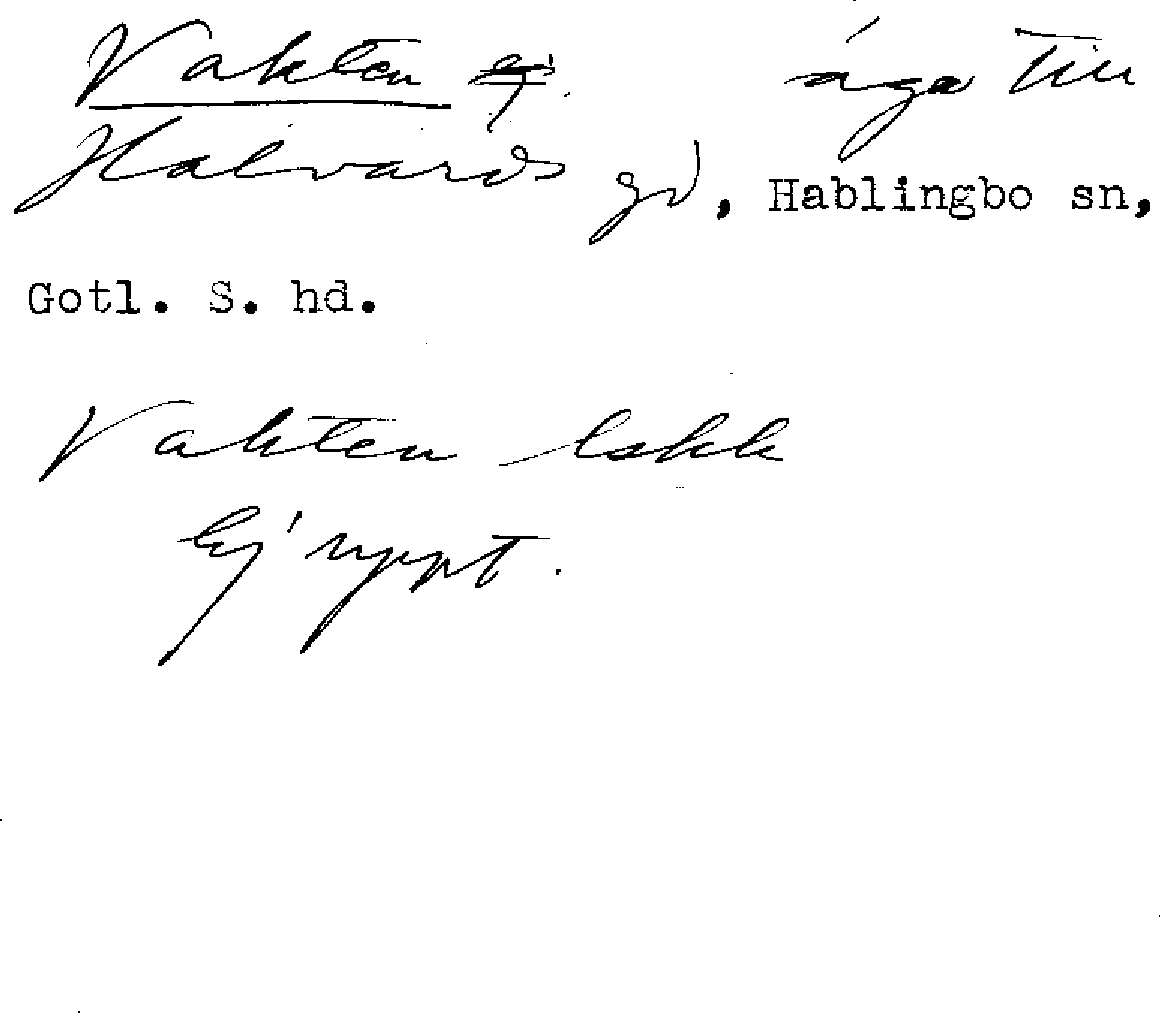 Vakten äga till
Halvards gd, Hablingbo sn,
Gotl. S. hd.
Vakten lskk
Ej uppt.